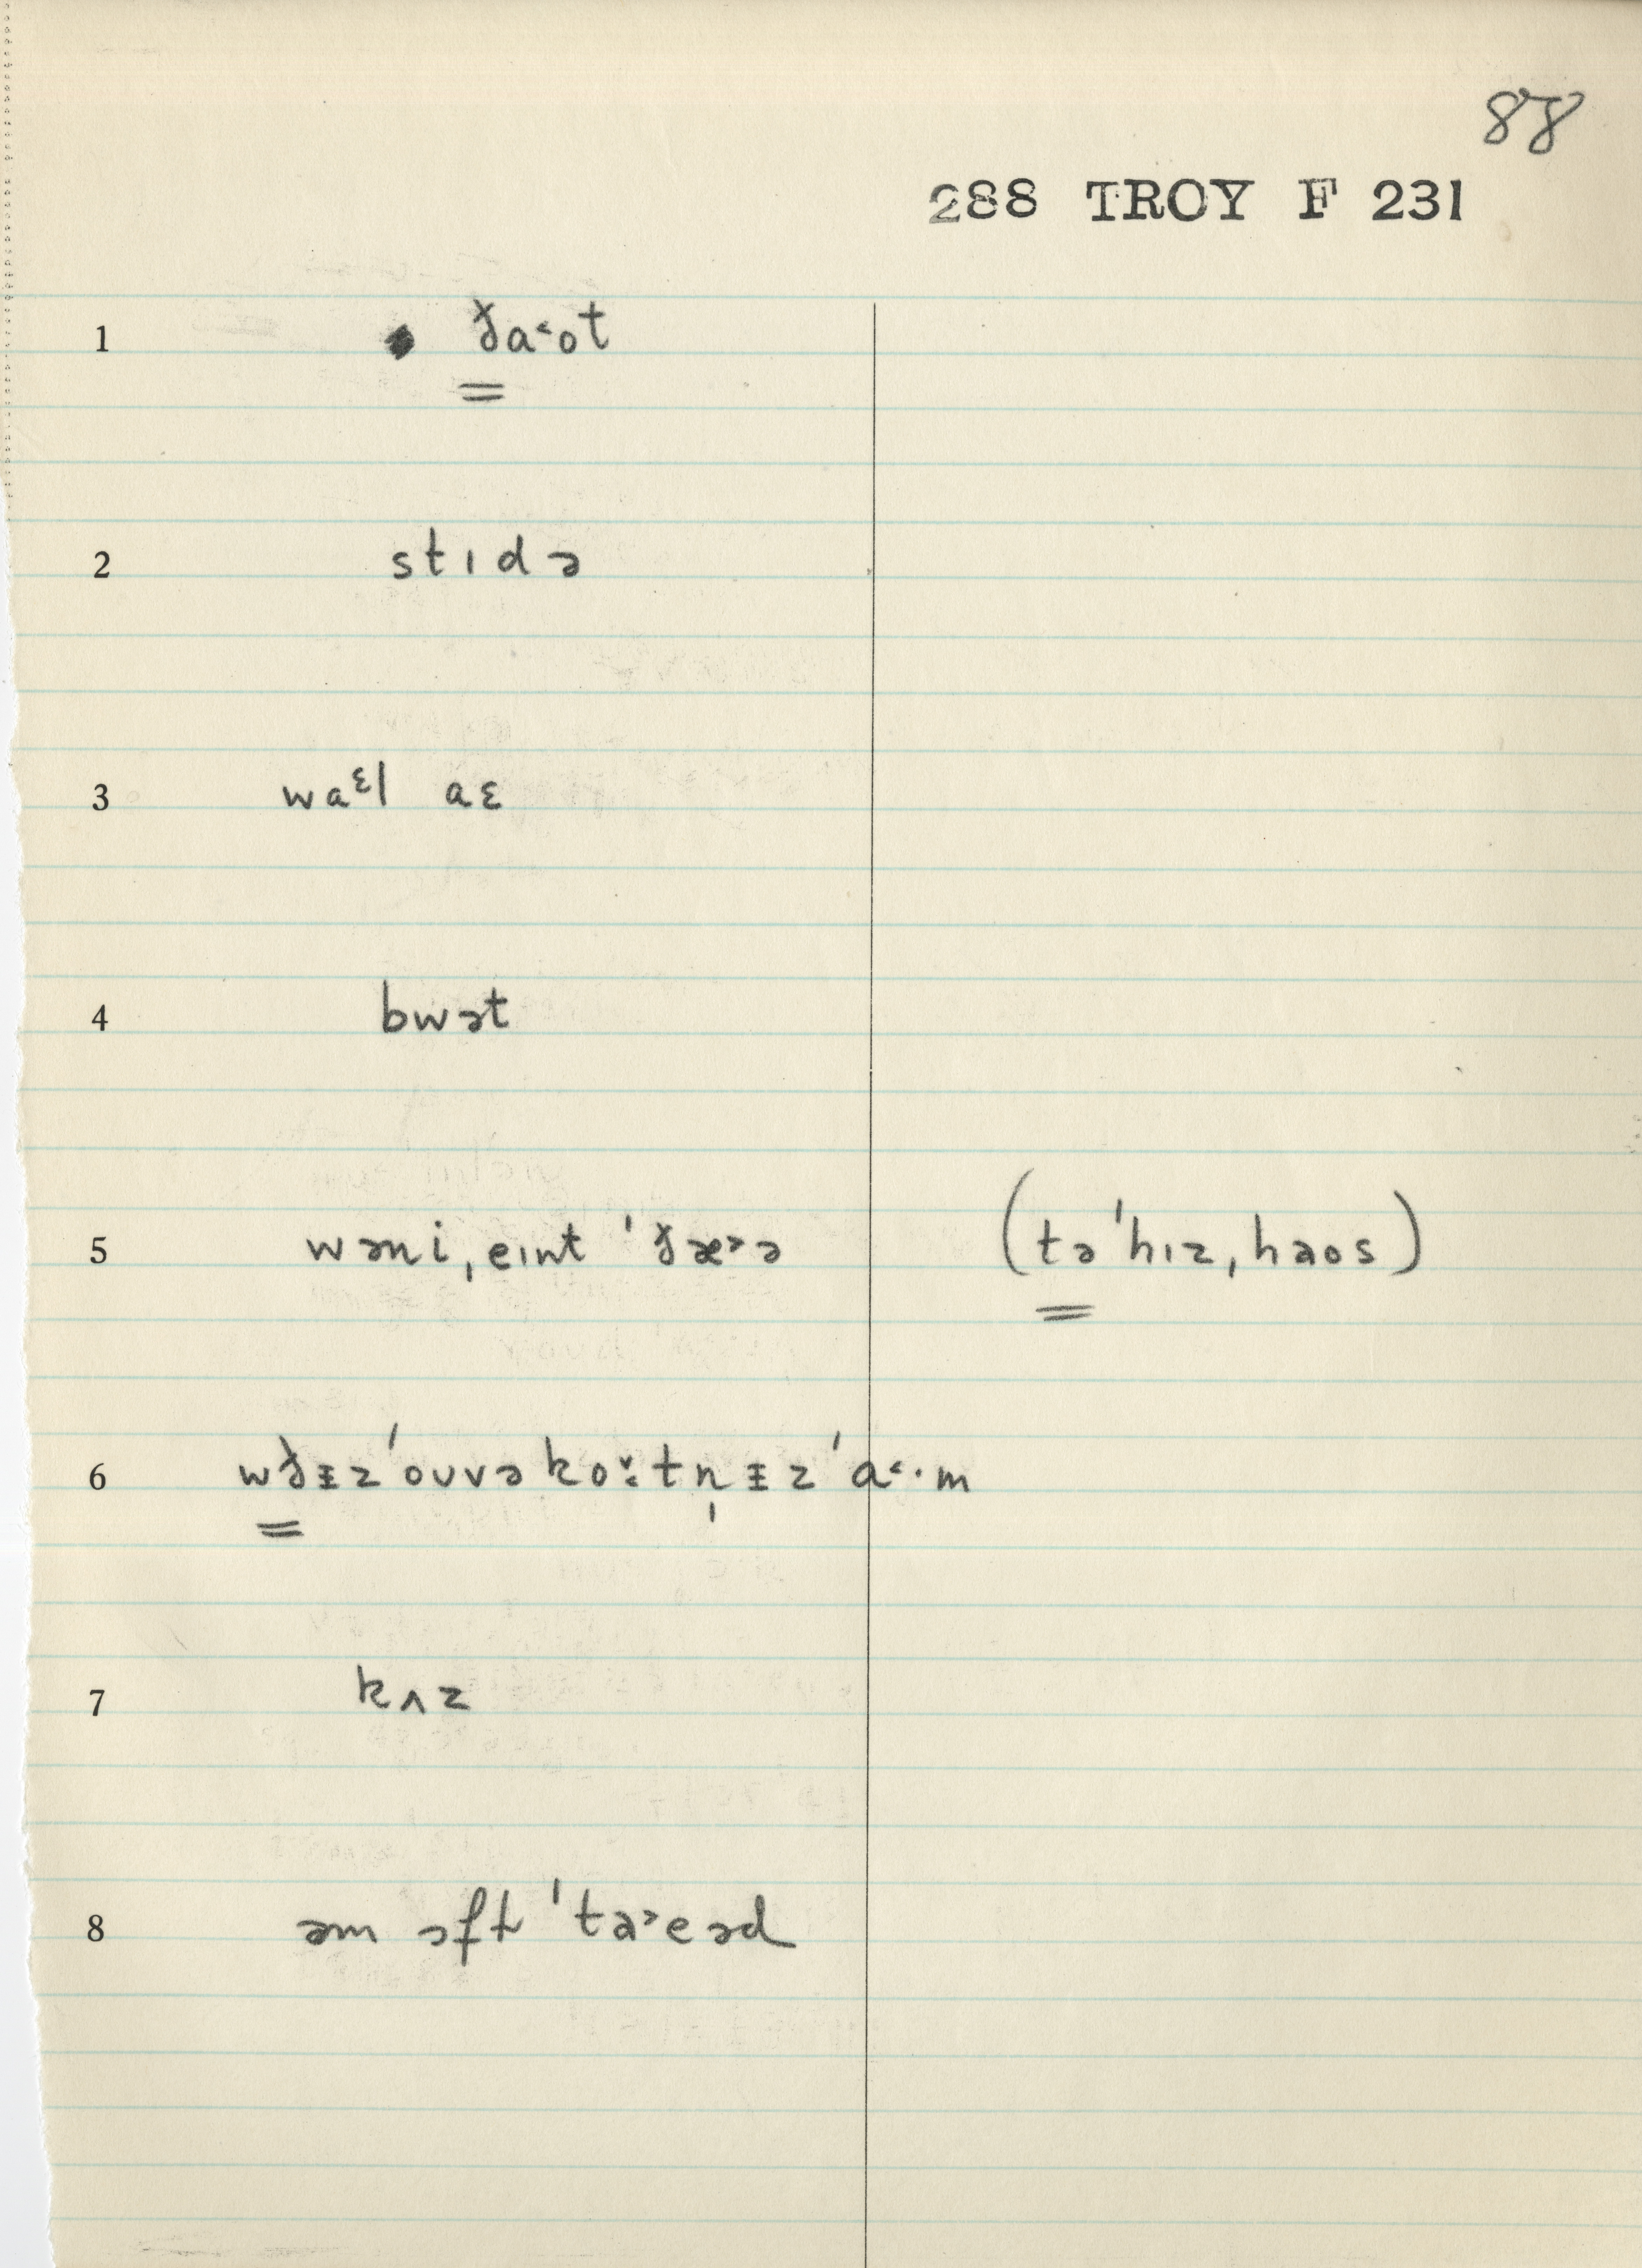 88
288 TROY F 231
1 ɣ̌a˂ot
2 stɪdə
3 waᵋl aɛ
4 bwət
5 wəni, eɪnt 'ðæ˃ə (tə'hɪz, haos)
6 wðɪ̵z'oʊvəko˅:tn̩ɪ̵z'a˂·m
7 kʌz
8 əm əft 'ta˃eəd